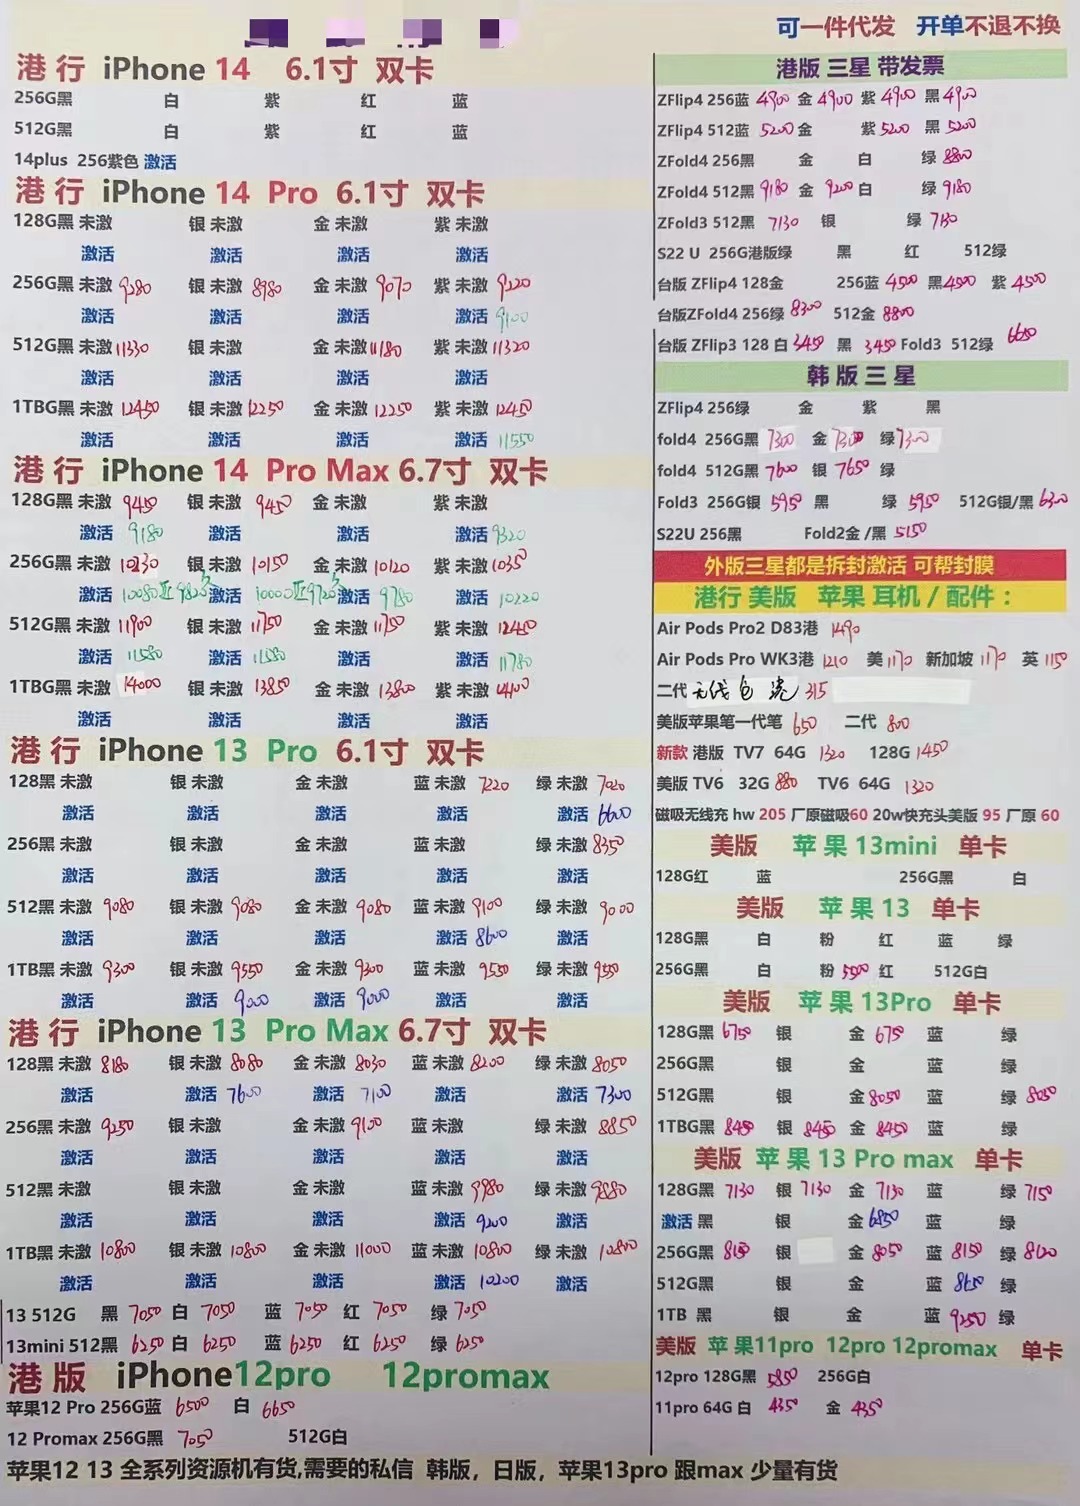 港行 iPhone 14 6.1寸 双卡
256G黑 白 紫 红 蓝
512G黑 白 紫 红 蓝
14plus 256紫色 激活
港行 iPhone 14 Pro 6.1寸 双卡
128G黑 未激 银 未激 金 未激 紫 未激
激活 激活 激活 激活
256G黑 未激 9280 银 未激 8980 金 未激 9070 紫 未激 9220
激活 激活 激活 激活 9100
512G黑 未激 11330 银 未激 金 未激 11180 紫 未激 11320
激活 激活 激活 激活
1TBG黑 未激 12450 银 未激 12250 金 未激 12250 紫 未激 12450
激活 激活 激活 激活 11550
港行 iPhone 14 Pro Max 6.7寸 双卡
128G黑 未激 9450 银 未激 9450 金 未激 紫 未激
激活 9180 激活 激活 激活 9320
256G黑 未激 10230 银 未激 10150 金 未激 10120 紫 未激 1035
激活 10080 激活 10000 激活 9780 激活 10220
512G黑 未激 11900 银 未激 11750 金 未激 11750 紫 未激 12450
激活 11580 激活 11580 激活 激活 11780
1TBG黑 未激 14000 银 未激 13850 金 未激 13800 紫 未激 14100
激活 激活 激活 激活
港行 iPhone 13 Pro 6.1寸 双卡
128黑 未激 银 未激 金 未激 蓝 未激 7220 绿 未激 7020
激活 激活 激活 激活 激活 6600
256黑 未激 银 未激 金 未激 蓝 未激 绿 未激 8350
激活 激活 激活 激活 激活
512黑 未激 9080 银 未激 9080 金 未激 9080 蓝 未激 9100 绿 未激 9000
激活 激活 激活 激活 8600 激活
1TB黑 未激 9300 银 未激 9550 金 未激 9300 蓝 未激 9550 绿 未激 9550
激活 激活 9000 激活 9000 激活 激活
港行 iPhone 13 Pro Max 6.7寸 双卡
128黑 未激 8180 银 未激 8080 金 未激 8030 蓝 未激 8200 绿 未激 8050
激活 激活 7600 激活 7100 激活 激活 7300
256黑 未激 9250 银 未激 金 未激 9100 蓝 未激 绿 未激 8850
激活 激活 激活 激活 激活
512黑 未激 银 未激 金 未激 蓝 未激 9980 绿 未激 9880
激活 激活 激活 激活 9200 激活
1TB黑 未激 10800 银 未激 10800 金 未激 11000 蓝 未激 10800 绿 未激 10800
激活 激活 激活 激活 10200 激活
13 512G 黑 7050 白 7050 蓝 7050 红 7050 绿 7050
13mini 512黑 6250 白 6250 蓝 6250 红 6250 绿 6250
港版 iPhone12pro 12promax
苹果12 Pro 256G蓝 6500 白 6650
12 Promax 256G黑 7050 512G白
苹果12 13 全系列资源机有货,需要的私信 韩版，日版，苹果13pro 跟max 少量有货
可一件代发 开单不退不换
港版 三星 带发票
ZFlip4 256蓝 4900 金 4900 紫 4900 黑 4900
ZFlip4 512蓝 5200 金 紫 5200 黑 5200
ZFold4 256黑 金 白 绿 8800
ZFold4 512黑 9180 金 9200 白 绿 9180
ZFold3 512黑 7130 银 绿 7130
S22 U 256G港版绿 黑 红 512绿
台版 ZFlip4 128金 256蓝 4500 黑 4500 紫 4500
台版ZFold4 256绿 8300 512金 8800
台版 ZFlip3 128 白 3450 黑 3450 Fold3 512绿 6650
韩版三星
ZFlip4 256绿 金 紫 黑
fold4 256G黑 7300 金 7300 绿 7300
fold4 512G黑 7600 银 7650 绿
Fold3 256G银 5950 黑 绿 5950 512G银/黑 6300
S22U 256黑 Fold2金 /黑 5150
外版三星都是拆封激活 可帮封膜
港行 美版 苹果 耳机 / 配件：
Air Pods Pro2 D83港 1490
Air Pods Pro WK3港 1210 美 1170 新加坡 1170 英 1150
二代 无线仓 315
美版苹果笔一代笔 650 二代 800
新款 港版 TV7 64G 1320 128G 1450
美版 TV6 32G 880 TV6 64G 1320
磁吸无线充 hw 205 厂原磁吸60 20w快充头美版 95 厂原 60
美版 苹 果 13mini 单卡
128G红 蓝 256G黑 白
美版 苹 果 13 单卡
128G黑 白 粉 红 蓝 绿
256G黑 白 粉 5500 红 512G白
美版 苹 果 13Pro 单卡
128G黑 6750 银 金 6750 蓝 绿
256G黑 银 金 蓝 绿
512G黑 银 金 8050 蓝 绿 8050
1TBG黑 8450 银 8450 金 8450 蓝 绿
美版 苹 果 13 Pro max 单卡
128G黑 7130 银 7130 金 7130 蓝 绿 7150
激活 黑 银 金 6850 蓝 绿
256G黑 8150 银 金 8050 蓝 8150 绿 8120
512G黑 银 金 蓝 8650 绿
1TB 黑 银 金 蓝 9250 绿
美版 苹 果11pro 12pro 12promax 单卡
12pro 128G黑 5850 256G白
11pro 64G 白 4350 金 4350